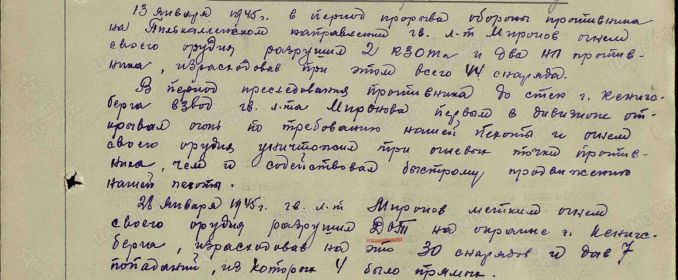 13 января 1945г. в период прорыва обороны противника
на Пилькаленском направлении гв. л-т Миронов огнем
своего орудия разрушил 2 ДЗОТа и два НП против-
ника, израсходовав при этом всего 44 снаряда.
В период преследования противника до стен г. Кенигс-
берга взвод гв. л-та Миронова первым в дивизионе от-
крывал огонь по требованию нашей пехоты и огнем
своего орудия уничтожил три огневых точки против-
ника, чем и содействовал быстрому продвижению
нашей пехоты.
28 января 1945г. гв. л-т Миронов метким огнем
своего орудия разрушил ДОТ на окраине г. Кенигс-
берга, израсходовав на это 30 снарядов и дав 7
попаданий, из которых 4 было прямых.